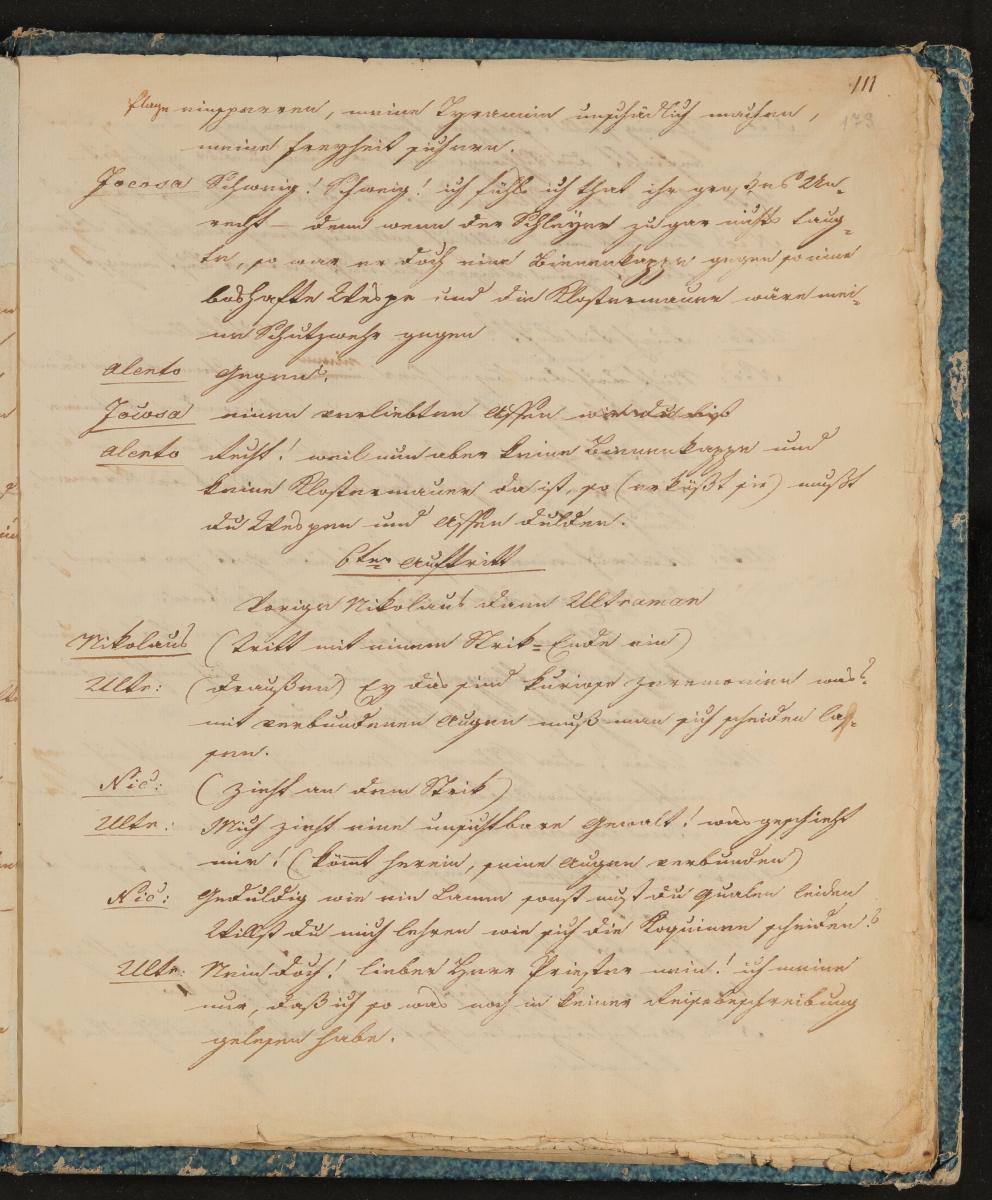 111
179
Plage einsperren, meine Tyrannin unschädlich machen,
meine Freyheit sichern.
Jocosa Schweig! Schweig! ich fühls ich that ihr großes Un-
recht – denn wenn der Schleyer zu gar nichts taug-
te, so war er doch eine Bienenkappe gegen so eine
boshafte Wespe und die Klostermauer wäre mei-
ne Schutzwehr gegen
Alento Gegen?
Jocosa einen verliebten Affen wie du bist
Alento Recht! weil nun aber keine Bienenkappe und
keine Klostermauer da ist, so (er küßt sie) mußt
du Wespen und Affen dulden.
6ter Auftritt
Vorige Nikolaus dann Ultraman
Nikolaus (tritt mit einem Strik-Ende ein)
Ultr: (draußen) Ey das sind kuriose Zeremonien was?
mit verbundenen Augen muß man sich scheiden las-
sen.
Nic: (zieht an dem Strik)
Ultr: Mich zieht eine unsichtbare Gewalt! was geschieht
mir! (kömt herein, seine Augen verbunden)
Nic: Geduldig wie ein Lamm sonst must du Qualen leiden
Willst du mich lehren wie sich die Koquinen scheiden?
Ultr: Nein doch! lieber Herr Priester nein! ich meine
nur, daß ich so was noch in keiner Reisebeschreibung
gelesen habe.